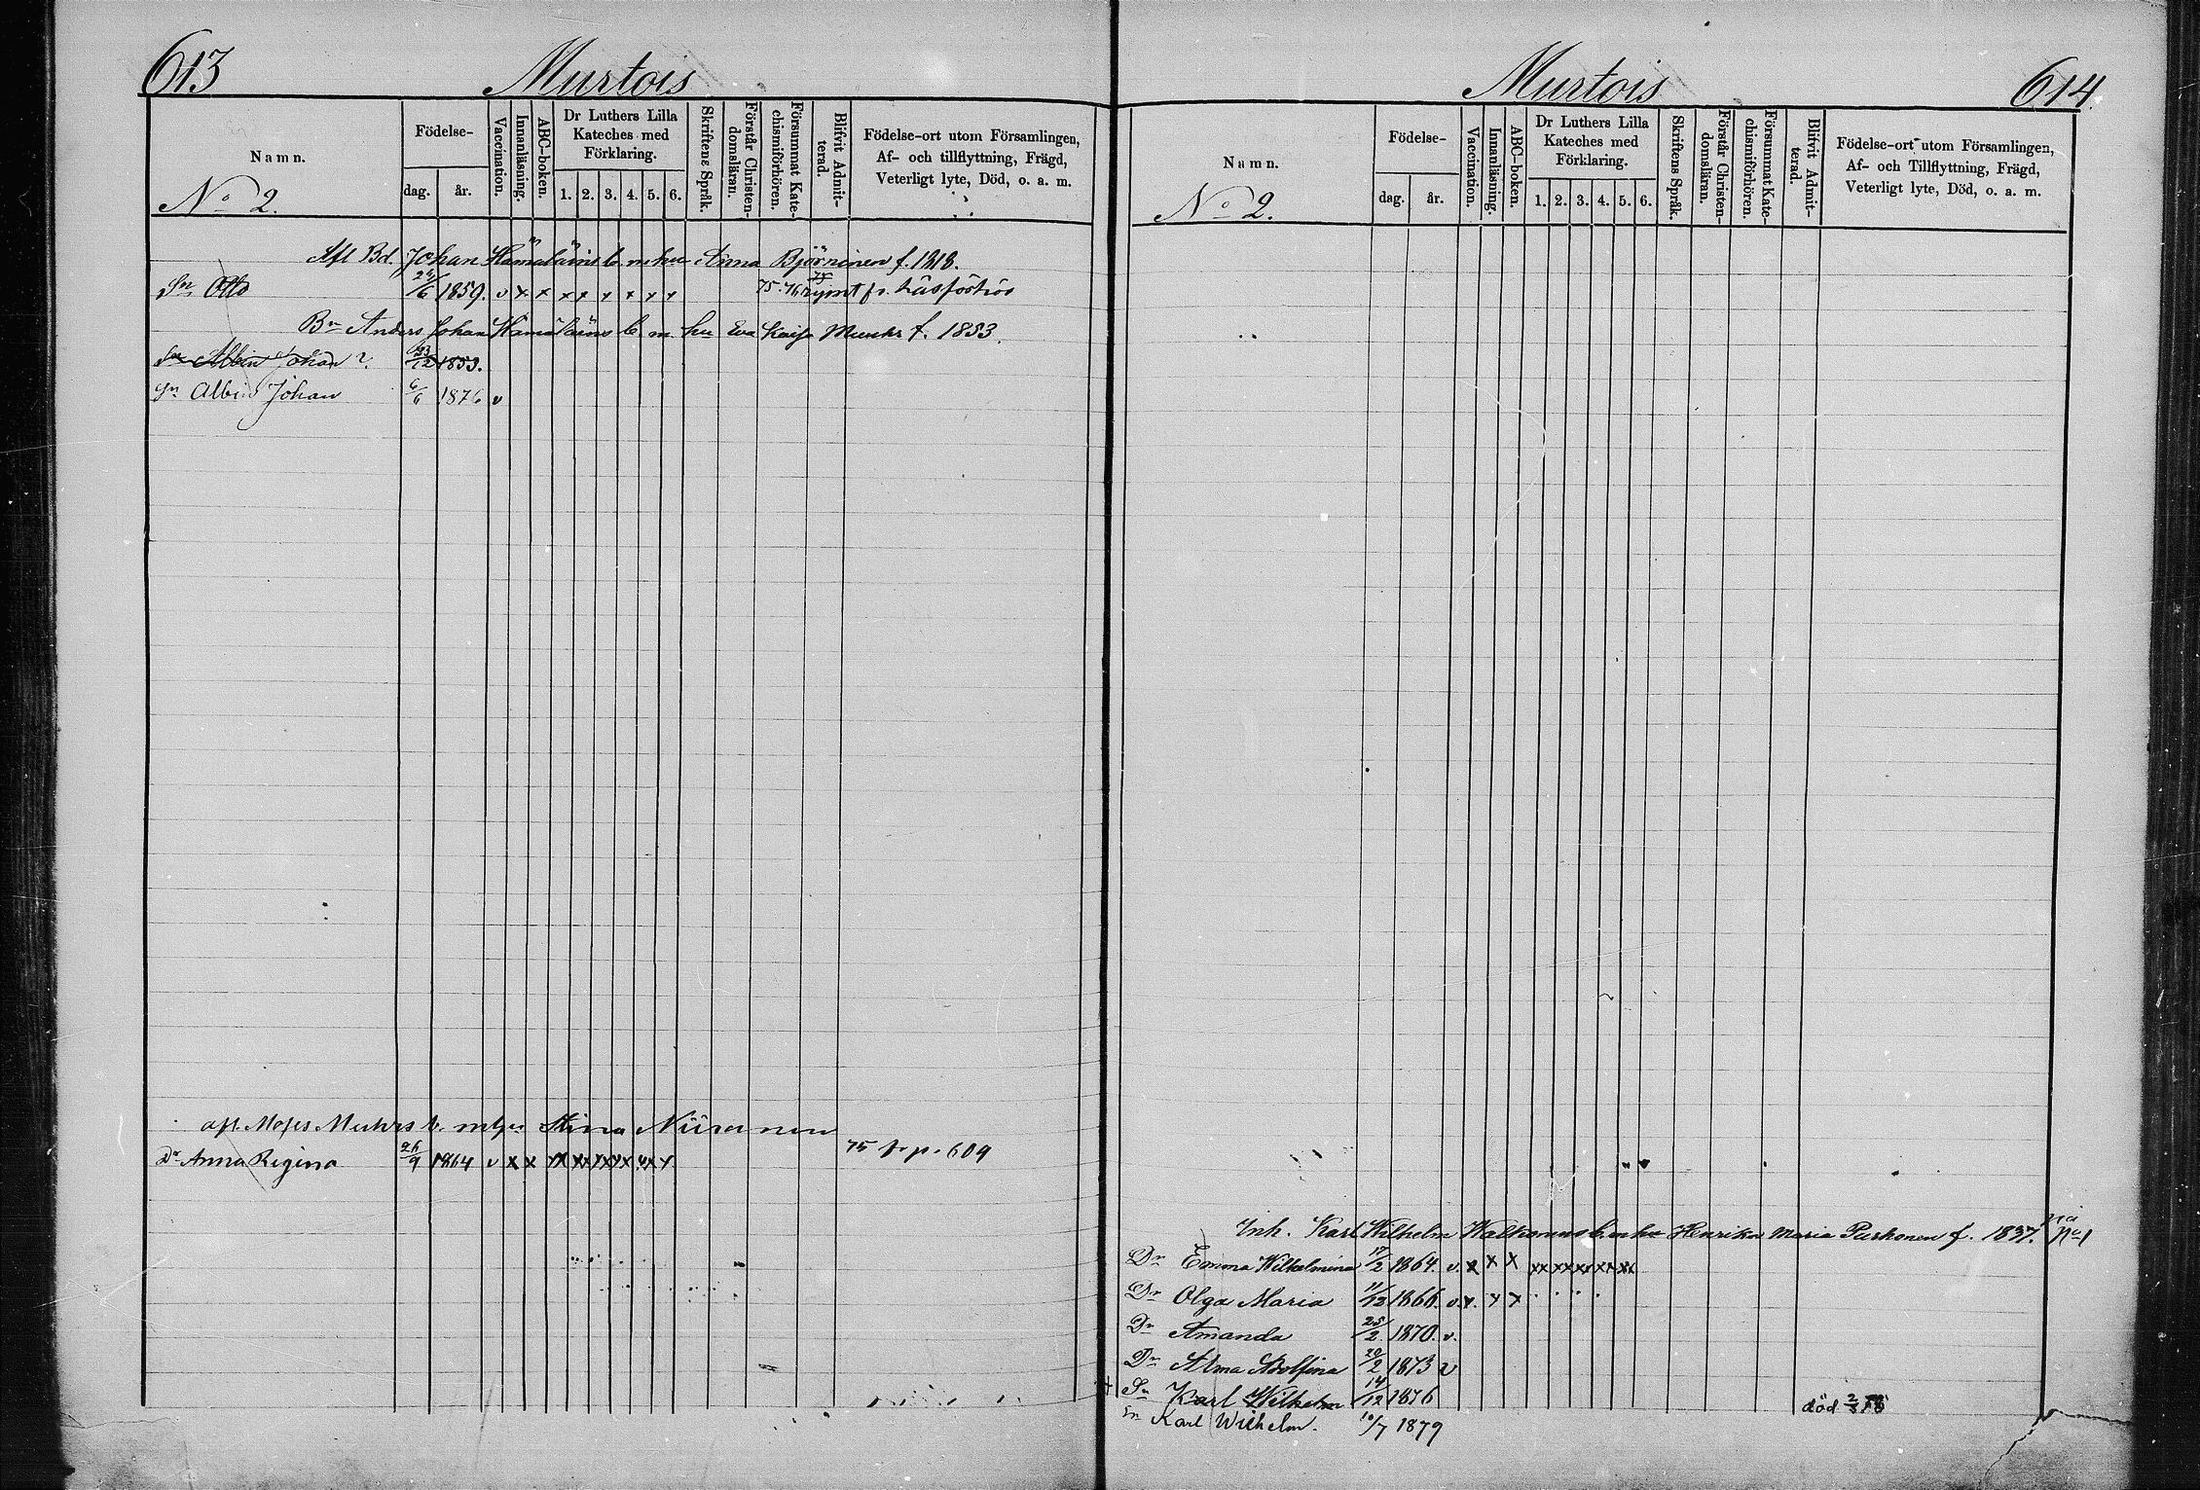 613
Murtois
Namn.
Födelse-
dag.
år.
Vaccination.
Innanläsning.
ABC-boken.
Dr Luthers Lilla
Kateches med
Förklaring.
1. 2. 3. 4. 5. 6.
Skriftens Språk.
Förstår Christen-
domsläran.
Försummat Kate-
chismiförhören.
Blifvit Admit-
terad.
Födelse-ort utom Församlingen,
Af- och tillflyttning, Frägd,
Veterligt lyte, Död, o. a. m.
No 2.
Afl Bd. Johan Hämäläins b. m hu Anna Björninen f. 1818.
Sn Otto 26/6 1859. v x x x x x x x x 75. 76
Bn Anders Johan Hämäläins b. m. hu Eva Kaisa Muuhr f. 1853.
Sn Albin Johan 23/12 1853.
Sn Albin Johan 6/6 1876 v
afl. Moses Muhrs b. m hu Stina Niiranen
75 fr. p. 609
Dr Anna Regina 26/9 1864 v x x xx xx xx xx xx x
Murtois
614.
Namn.
Födelse-
dag.
år.
Vaccination.
Innanläsning.
ABC-boken.
Dr Luthers Lilla
Kateches med
Förklaring.
1. 2. 3. 4. 5. 6.
Skriftens Språk.
Förstår Christen-
domsläran.
Försummat Kate-
chismiförhören.
Blifvit Admit-
terad.
Födelse-ort utom Församlingen,
Af- och Tillflyttning, Frägd,
Veterligt lyte, Död, o. a. m.
No 2.
Inh. Karl Wilhelm Walkonens b. m hu Henrika Maria Purhonen f. 1837. No 1
Dr Emma Wilhelmina 17/2 1864. v. x x x xx xx xx xx xx
Dr Olga Maria 11/12 1866. v. x. x x
Dr Amanda 25/2 1870. v.
Dr Alma Adolfina 20/2 1873 v
+ Sn Karl Wilhelm 14/12 1876 död 2/3 78
Sn Karl Wilhelm. 10/7 1879